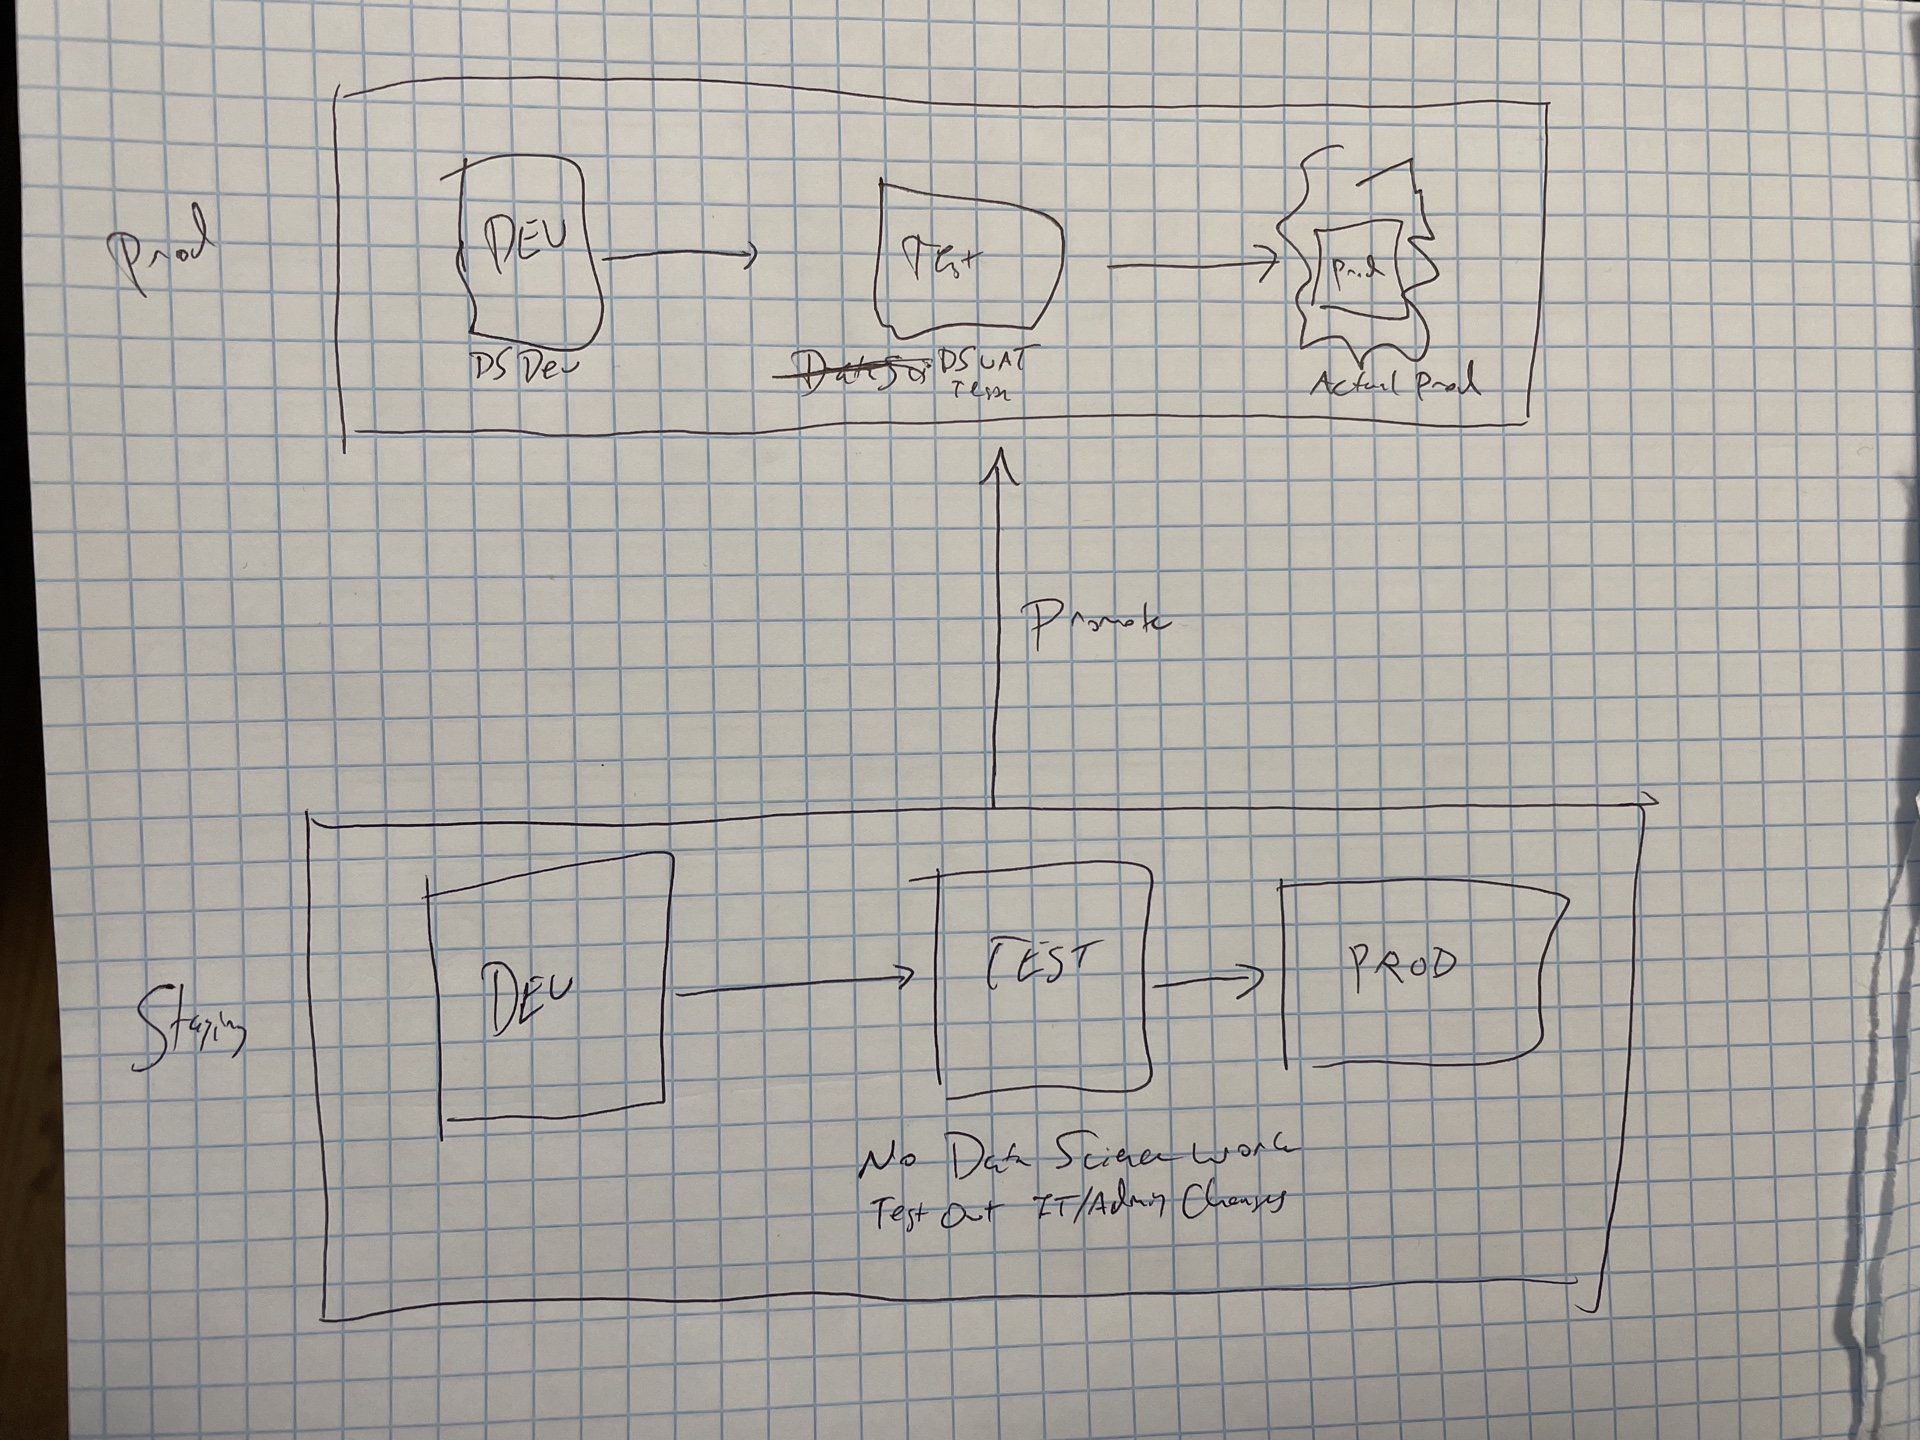 Prod
DEV
Test
Prod
DS Dev
DS UAT
Test
Actual Prod
Promote
Staging
DEV
TEST
PROD
No Data Science work
Test Out IT/Admin Changes